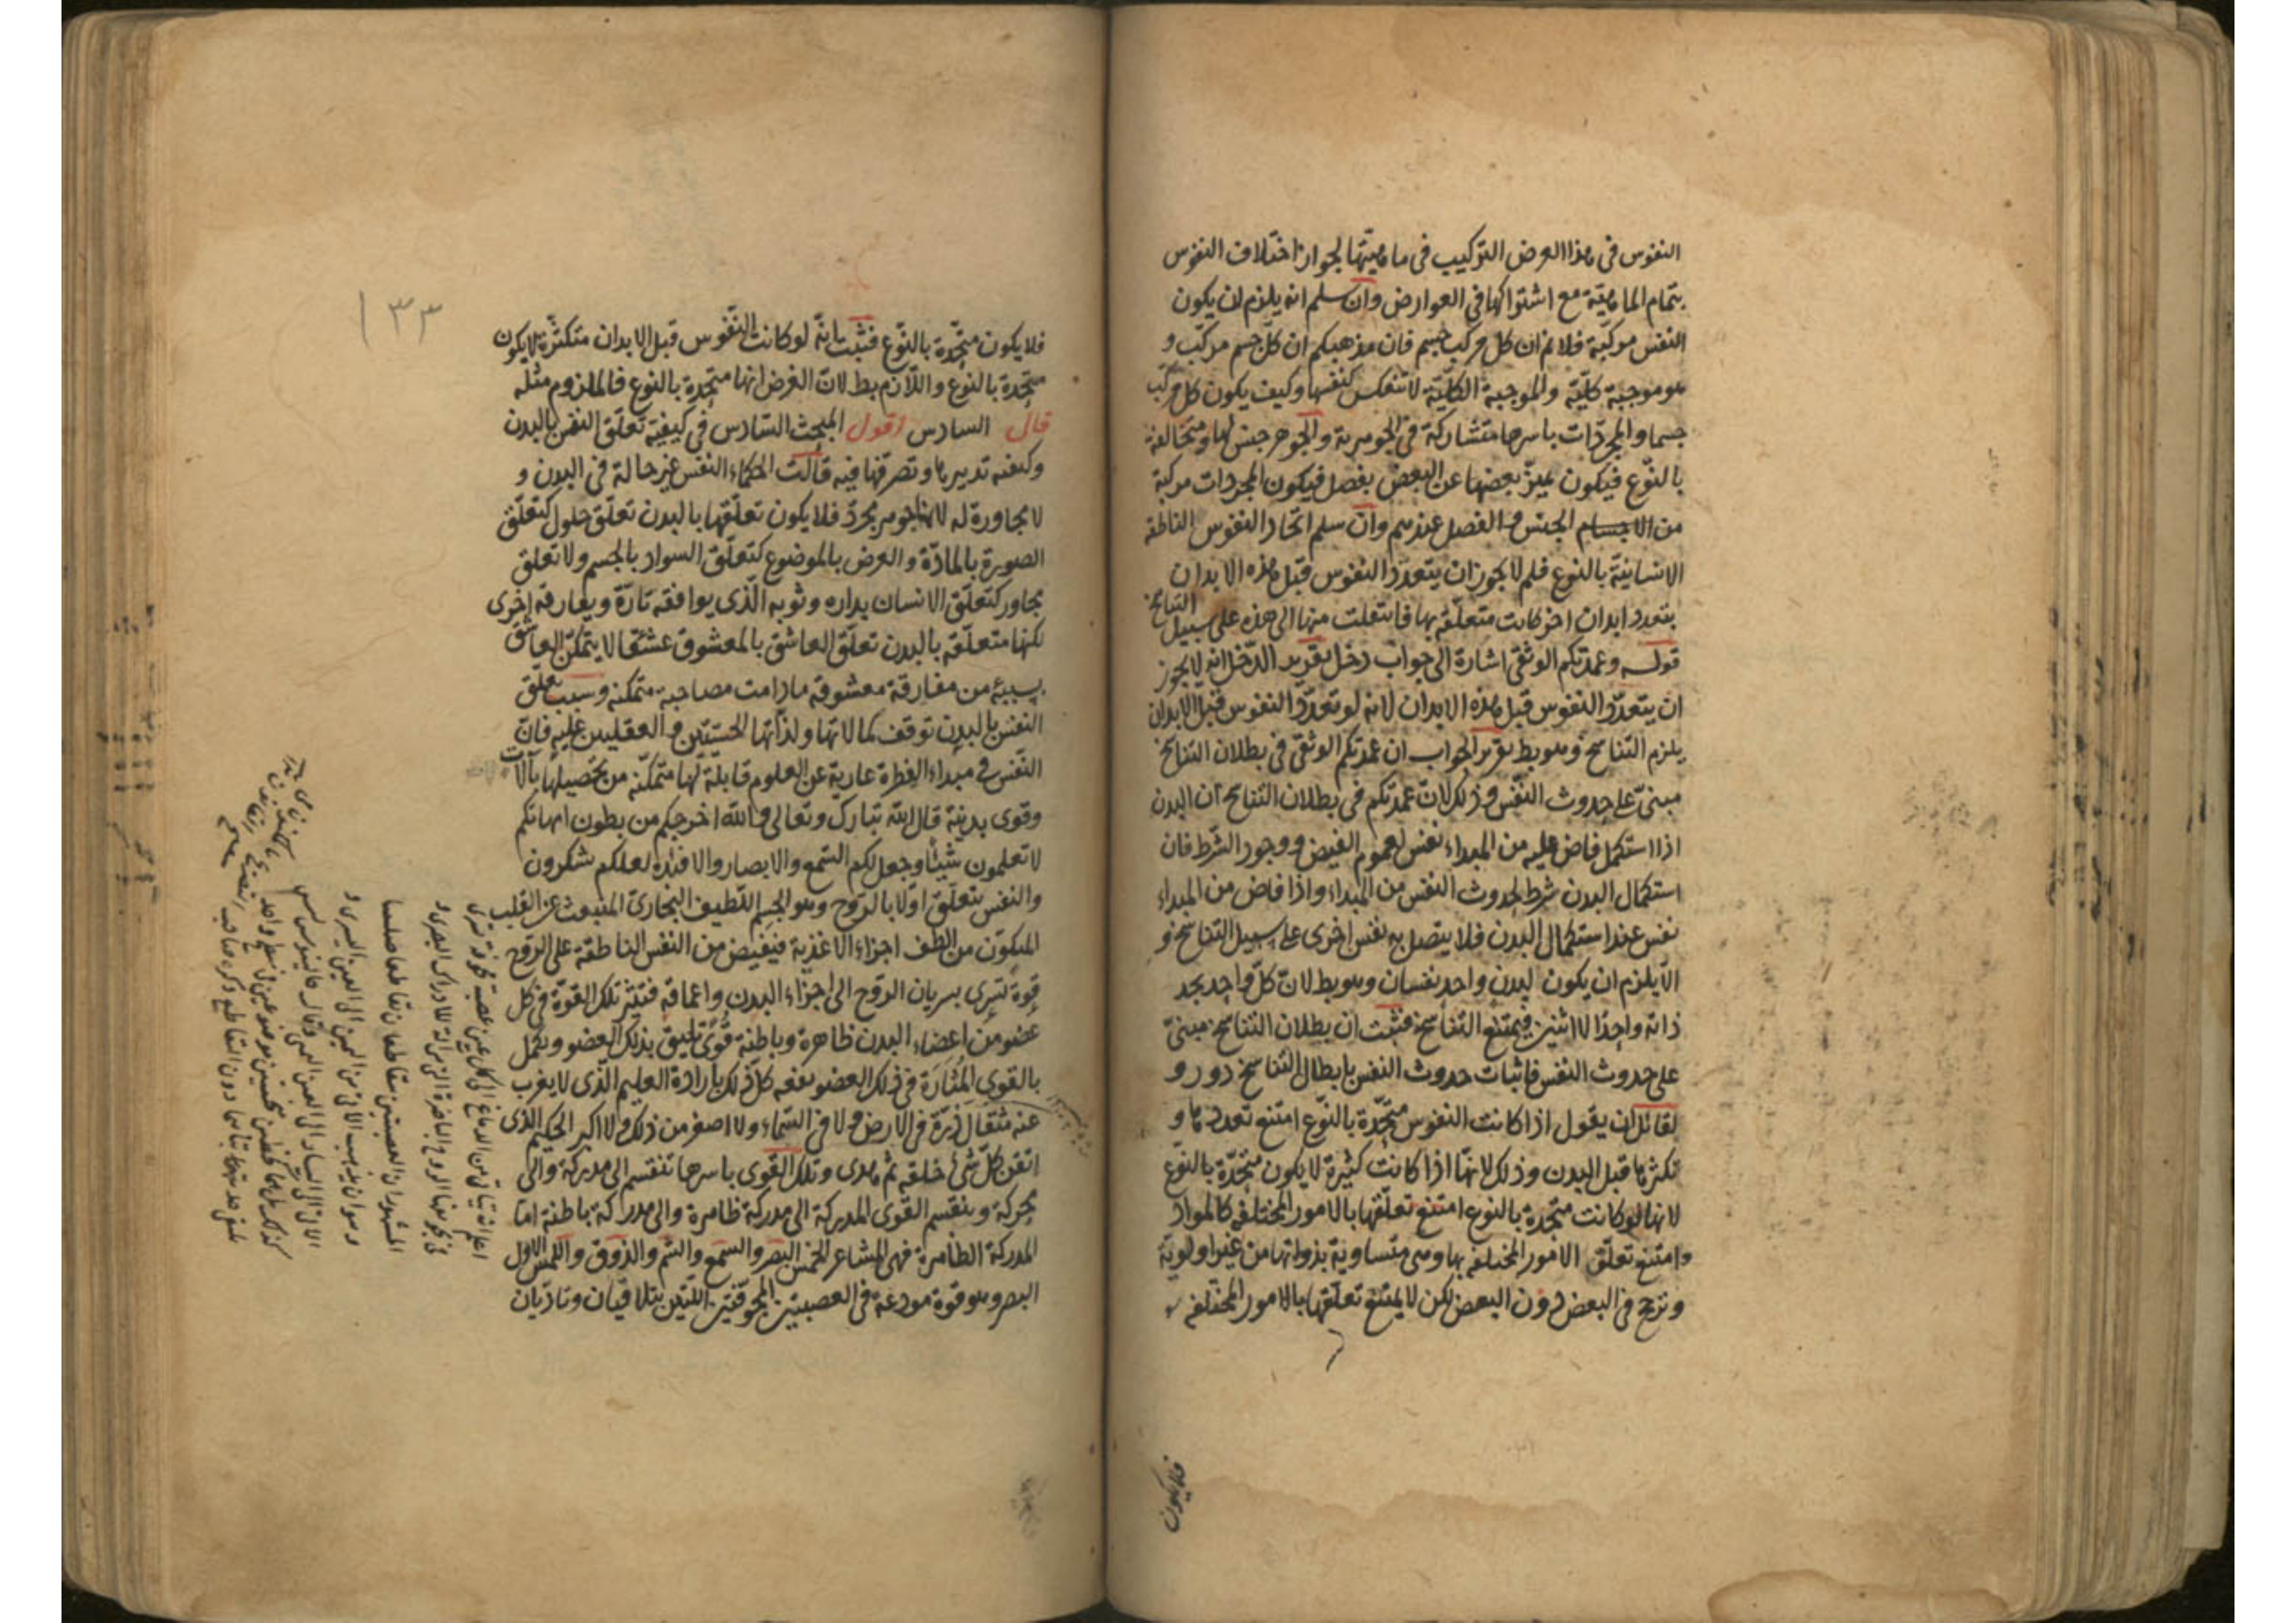 النفوس فى هذا العرض التركيب فى ماهيتها لجواز اختلاف النفوس
بتمام الماهية مع اشتراكها فى العوارض وان سلم انه يلزم ان يكون
النفس مركبة فلا نم ان كل مركب جسم فان مذهبكم ان كل جسم مركب و
هو موجبة كلية والموجبة الكلية لا تنعكس كنفسها وكيف يكون كل مركب
جسما والمجردات باسرها متشاركة فى الجوهرية والجوهر جنس لها ومتخالفة
بالنوع فيكون يميز بعضها عن البعض بفصل فيكون المجردات مركبة
من الاجسام الجنس و الفصل عندهم وان سلم اتحاد النفوس الناطقة
الانسانية بالنوع فلم لا يجوز ان يتعدد النفوس قبل هذه الابدان
بتعدد ابدان اخر كانت متعلقة بها فانتقلت منها الى هذه على سبيل التناسخ
قوله وعمدتكم الوثقى اشارة الى جواب دخل تقرير الدخل انه لا يجوز
ان يتعدد النفوس قبل هذه الابدان لانه لو تعدد النفوس قبل الابدان
يلزم التناسخ وهو بط تقرير الجواب ان عمدتكم الوثقى فى بطلان التناسخ
مبنى على حدوث النفس وذلك لان عمدتكم فى بطلان التناسخ ان البدن
اذا استكمل فاض عليه من المبداء نفس لعموم الفيض ووجود الشرط فان
استكمال البدن شرط لحدوث النفس من المبداء واذا فاض من المبداء
نفس عند استكمال البدن فلا يتصل به نفس اخرى على سبيل التناسخ و
الا يلزم ان يكون لبدن واحد نفسان وهو بط لان كل واحد يجد
ذاته واحدا لا اثنين فيمتنع التناسخ فثبت ان بطلان التناسخ مبنى
على حدوث النفس فاثبات حدوث النفس بابطال التناسخ دور و
لقائل ان يقول اذا كانت النفوس متحدة بالنوع امتنع تعددها و
تكثرها قبل البدن وذلك لانها اذا كانت كثيرة لا يكون متحدة بالنوع
لانها لو كانت متحدة بالنوع امتنع تعلقها بالامور المختلفة كالمواد
وامتنع تعلق الامور المختلفة بها وهى متساوية بذواتها من غير اولوية
وترجح فى البعض دون البعض لكن لا يمتنع تعلقها بالامور المختلفة
فلا يكون
١٣٣
فلا يكون متحدة بالنوع فثبت انه لو كانت النفوس قبل الابدان متكثرة لا يكون
متحدة بالنوع واللازم بط لان الفرض انها متحدة بالنوع فالملزوم مثله
قال السادس اقول المبحث السادس فى كيفية تعلق النفس بالبدن
وكيفية تدبيرها وتصرفها فيه قالت الحكماء النفس غير حالة فى البدن و
لا مجاورة له لانها جوهر مجرد فلا يكون تعلقها بالبدن تعلق حلول كتعلق
الصورة بالمادة والعرض بالموضوع كتعلق السواد بالجسم ولا تعلق
تجاور كتعلق الانسان بداره وثوبه الذى يوافقه تارة ويفارقه اخرى
لكنها متعلقة بالبدن تعلق العاشق بالمعشوق عشقا لا يتمكن العاشق
بسببه من مفارقة معشوقه مادامت مصاحبة ممكنة وسبب تعلق
النفس بالبدن توقف كمالاتها ولذاتها الحسيتين والعقليين عليه فان
النفس فى مبداء الفطرة عارية عن العلوم قابلة لها متمكنة من تحصيلها بالات
وقوى بدنية قال الله تبارك وتعالى والله اخرجكم من بطون امهاتكم
لا تعلمون شيئا وجعل لكم السمع والابصار والافئدة لعلكم تشكرون
والنفس تتعلق اولا بالروح وهو الجسم اللطيف البخارى المنبعث عن القلب
المتكون من الطف اجزاء الاغذية فيفيض من النفس الناطقة على الروح
قوة تسرى بسريان الروح الى اجزاء البدن واعماقه فتثير تلك القوة فى كل
عضو من اعضاء البدن ظاهرة وباطنة قوى تليق بذلك العضو ويكمل
بالقوى المثارة فى ذلك العضو نفعه كل ذلك بارادة العليم الذى لا يعزب
عنه مثقال ذرة فى الارض ولا فى السماء ولا اصغر من ذلك ولا اكبر الحكيم الذى
اتقن كل شئ خلقه ثم هدى وتلك القوى باسرها تنقسم الى مدركة والى
محركة وينقسم القوى المدركة الى مدركة ظاهرة والى مدركة باطنة اما
المدركة الظاهرة فهى المشاعر الخمس البصر والسمع والشم والذوق واللمس الاول
البصر وهو قوة مودعة فى العصبتين المجوفتين اللتين يتلاقيان وتتاديان